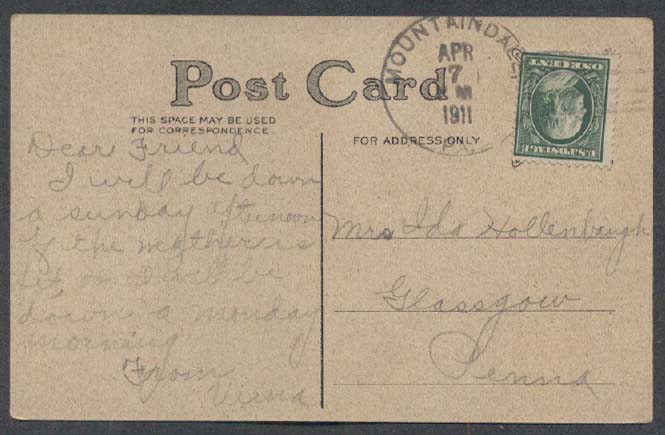 Post Card
THIS SPACE MAY BE USED
FOR CORRESPONDENCE.
FOR ADDRESS ONLY
MOUNTAINDALE
APR
7
1911
PA.
U.S. POSTAGE
ONE CENT
Dear Friend
I will be down
a sunday afternoon
if the weather is
fit or I will be
down a monday
morning
From
Mrs Ida Hollenbaugh
Glassgow
Penna